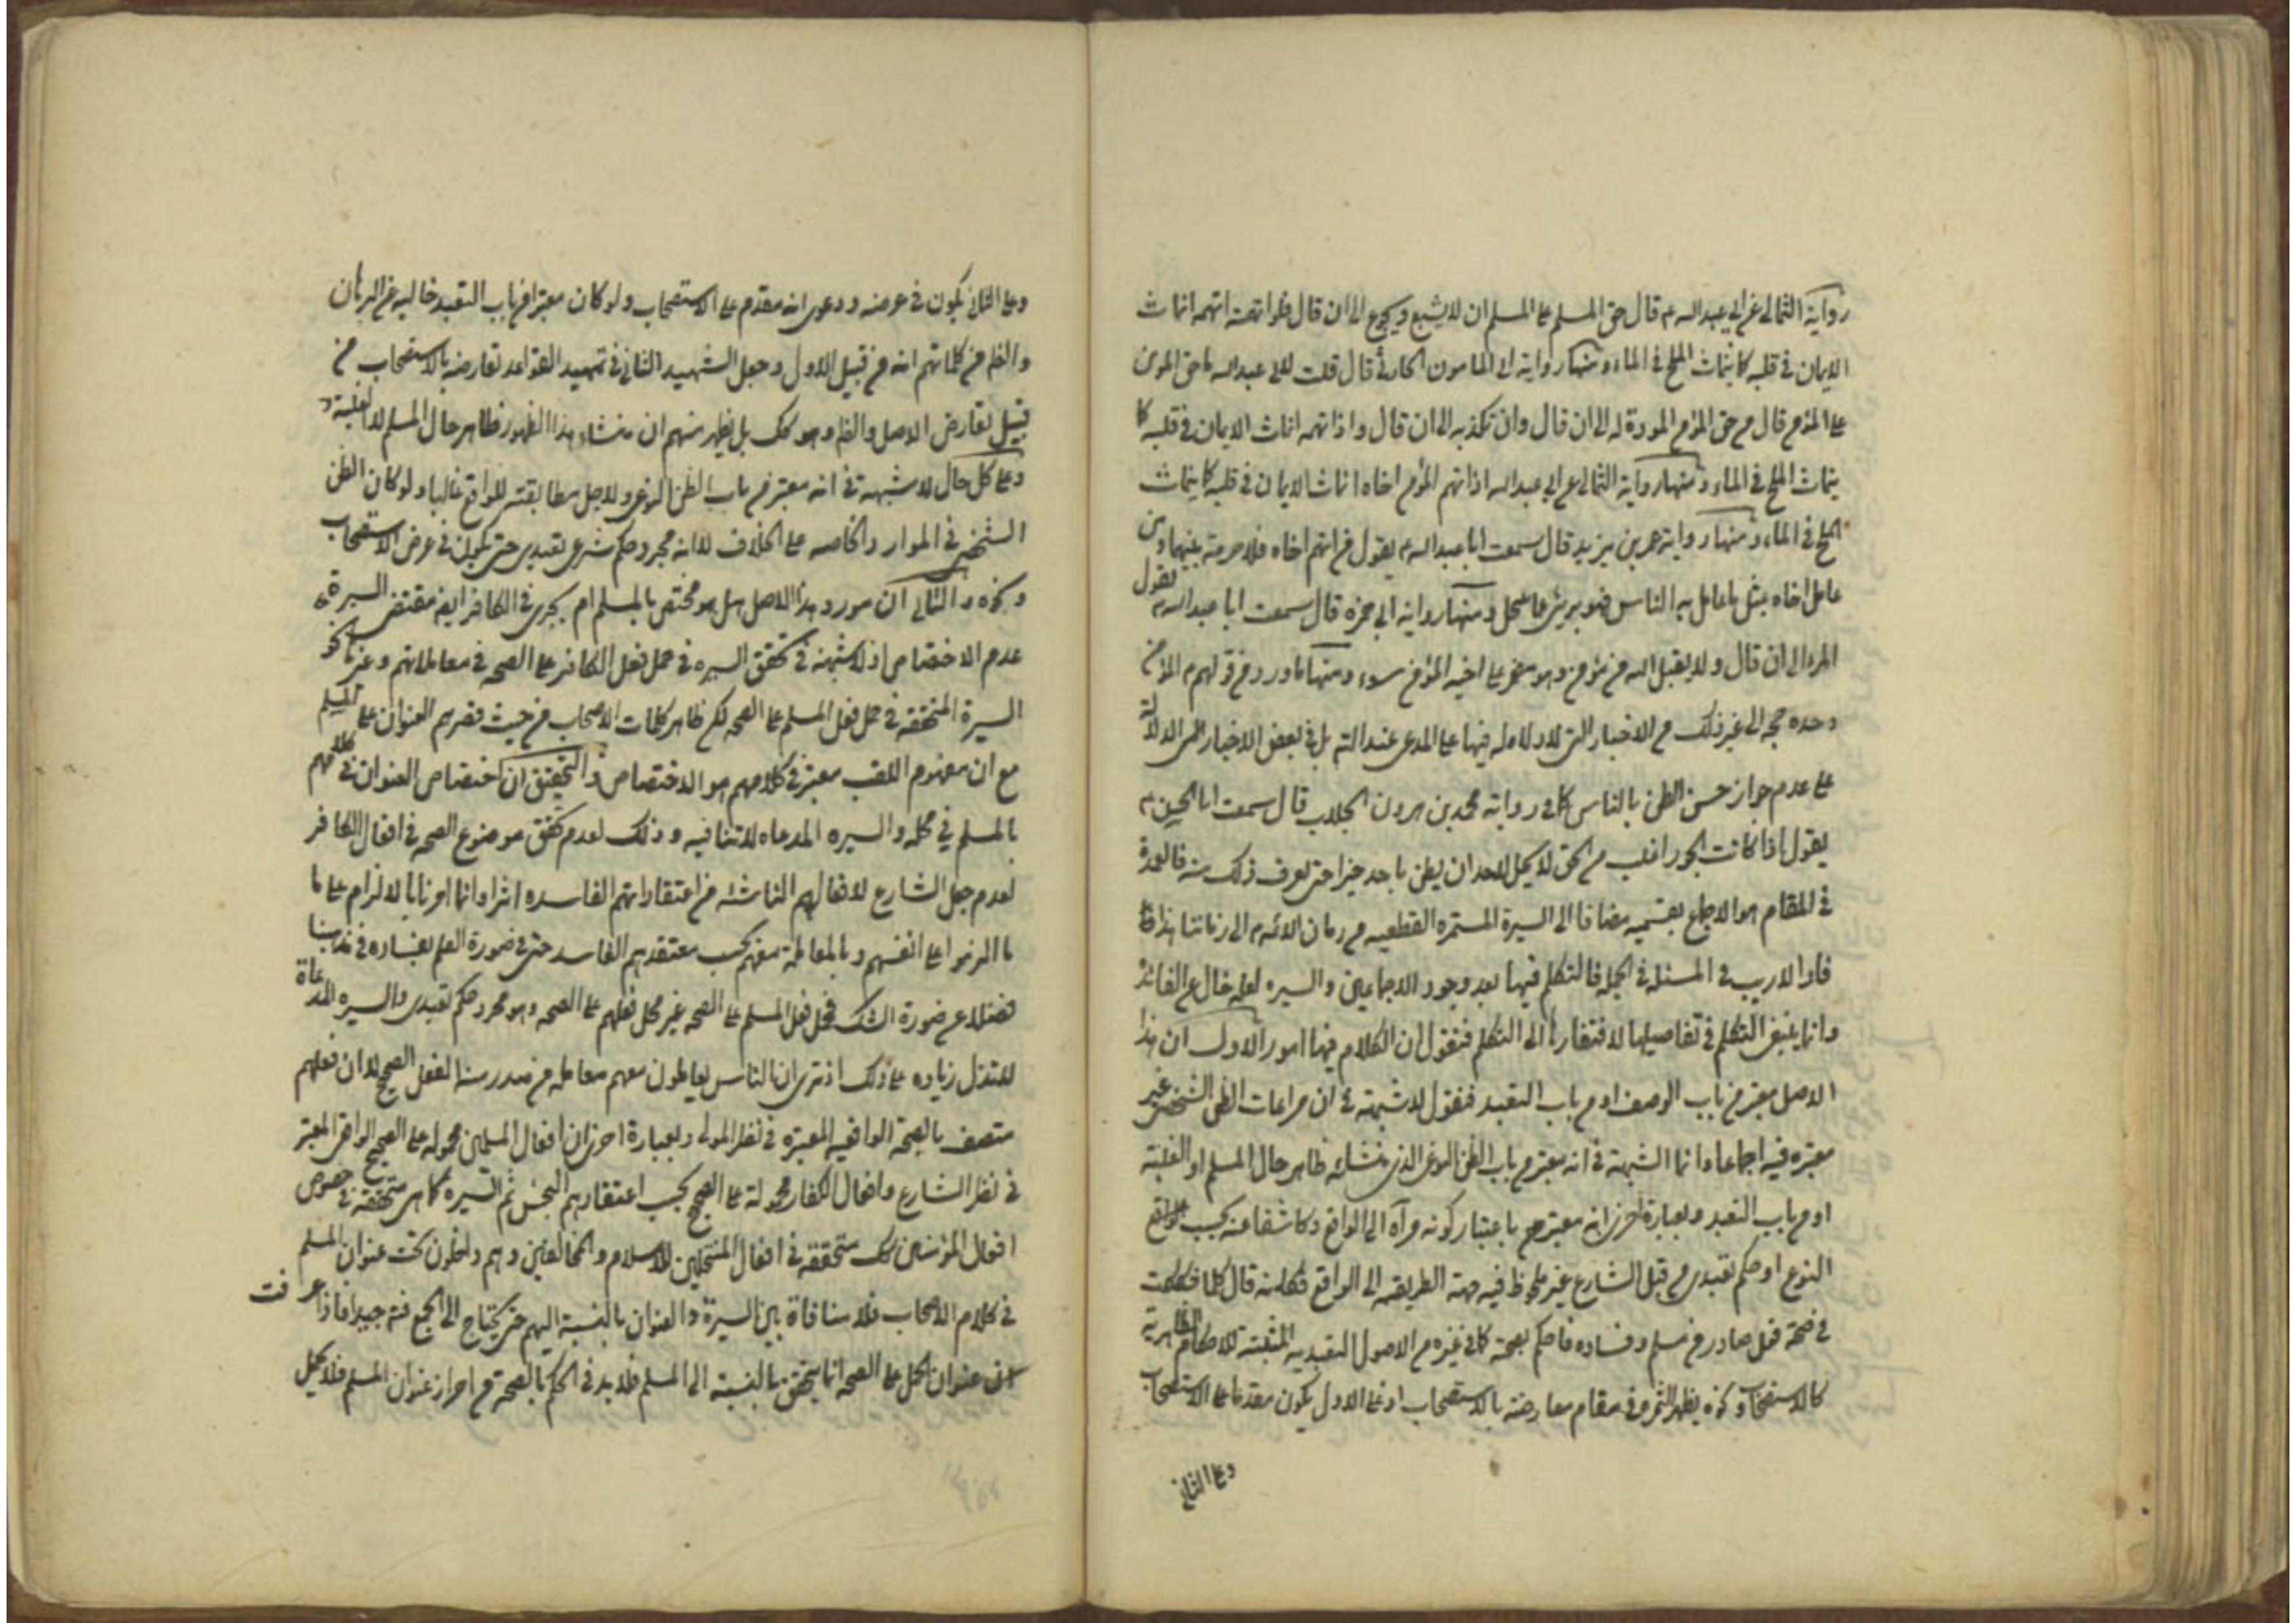 رواية الثمالى عن ابي عبد الله ع قال حق المسلم على المسلم ان لا يشبع ويجوع الى ان قال فلو اتهمه انماث
الايمان في قلبه كما ينماث الملح في الماء ومنها رواية ابى المامون الحارثى قال قلت لابى عبد الله ما حق المومن
على المؤمن قال من حق المؤمن المودة له الى ان قال وان تكذبه الى ان قال واذا اتهمه انماث الايمان في قلبه كما
ينماث الملح في الماء ومنها رواية الثمالى عن ابي عبد الله اذا اتهم المؤمن اخاه انماث الايمان في قلبه كما ينماث
الملح في الماء ومنها رواية عمر بن يزيد قال سمعت ابا عبد الله ع يقول من اتهم اخاه فلا حرمة بينهما ومن
عامل اخاه بمثل ما عامل به الناس فهو برىء مما ينتحل ومنها رواية ابى حمزه قال سمعت ابا عبد الله ع يقول
الى ان قال ولا يقبل الله من مؤمن وهو مضمر على اخيه المؤمن سوء ومنها ما ورد من قولهم ع المؤمن
وحده حجه الى غير ذلك من الاخبار التى لا دلاله فيها على المدعى بل في بعض الاخبار الدلالة
على عدم جواز حسن الظن بالناس كما في رواية محمد بن هرون الجلاب قال سمعت ابا الحسن ع
يقول اذا كانت الجور اغلب من الحق لا يحل لاحد ان يظن باحد خيرا حتى يعرف ذلك منه فالعمدة
في المقام هو الاجماع بقسميه مضافا الى السيرة المستمره القطعيه من زمان الائمه ع الى زماننا هذا
فاذا لا ريب في المسئله في الجمله فالتكلم فيها بعد وجود الاجماعين والسيره لعله خال عن الفائده
وانما ينبغى التكلم في تفاصيلها لافتقارها الى التكلم فنقول ان الكلام فيها امور الاول ان هذا
الاصل معتبر من باب الوصف او من باب التعبد فنقول لا شبهة في ان مراعات الظن الشخصى غير
معتبره فيه اجماعا وانما الشبهة في انه معتبر من باب الظن النوعى الذى منشائه ظاهر حال المسلم او الغلبة
او من باب التعبد وبعبارة اخرى انه معتبر باعتبار كونه مرآة الى الواقع وكاشفا عنه بحسب
النوع او حكم تعبدى من قبل الشارع غير ملحوظ فيه جهة الطريقيه الى الواقع فكانه قال كلما شككت
في صحة فعل صادر من مسلم وفساده فاحكم بصحة كما في غيره من الاصول التعبديه المثبتة للاحكام الظاهرية
كالاستصحاب ونحوه يظهر الثمره في مقام معارضته بالاستصحاب اذ على الاول يكون مقدما على الاستصحاب
وعلى الثانى
وعلى الثانى يكون في عرضه ودعوى انه مقدم على الاستصحاب ولو كان معتبرا من باب التعبد خاليه عن البرهان
والظ من كلماتهم انه من قبيل الاول وجعل الشهيد الثانى في تمهيد القواعد تعارضه بالاستصحاب من
قبيل تعارض الاصل والظ وهو كك بل يظهر منهم ان منشاء هذا الظهور ظاهر حال المسلم لا الغلبة
وعلى كل حال لا شبهة في انه معتبر من باب الظن النوعى ولاجل مطابقته للواقع غالبا ولو كان الظن
الشخصى في الموارد الخاصه على الخلاف لا انه مجرد حكم شرعى تعبدى حتى يكون في عرض الاستصحاب
ونحوه والثانى ان مورد هذا الاصل هل هو مختص بالمسلم ام يجرى في الكافر ايض مقتضى السيرة
عدم الاختصاص اذ لا شبهة في تحقق السيره في حمل فعل الكافر على الصحه في معاملاتهم وغيرها كنحو
السيرة المتحققه في حمل فعل المسلم على الصحه لكن ظاهر كلمات الاصحاب من حيث قصرهم العنوان على المسلم
مع ان مفهوم اللقب معتبر في كلامهم هو الاختصاص والتحقيق ان اختصاص العنوان في كلامهم
بالمسلم في محله والسيره المدعاه لا تنافيه وذلك لعدم تحقق موضوع الصحه في افعال الكافر
لعدم جعل الشارع لافعالهم الناشئه من اعتقاداتهم الفاسده اثرا وانما امرنا بالالزام على ما
ما الزموا على انفسهم وبالمعاملة معهم بحسب معتقدهم الفاسد حتى في صورة العلم بفساده في مذهبنا
فضلا عن صورة الشك فحمل فعل المسلم على الصحه غير حمل فعلهم على الصحه وهو مجرد حكم تعبدى والسيره المدعاة
لا تدل زياده على ذلك اذ ترى ان الناس يعاملون معهم معامله من صدر منه الفعل الصحيح لا ان فعلهم
متصف بالصحة الواقعيه المعتبره في نظر المولى وبعبارة اخرى ان افعال المسلمين محموله على الصحيح الواقعى المعتبر
في نظر الشارع وافعال الكفار محمولة على الصحيح بحسب اعتقادهم ثم السيره كما هى متحققه في خصوص
افعال المؤمنين كك متحققه في افعال المنتحلين للاسلام والمخالفين وهم داخلون تحت عنوان المسلم
في كلام الاصحاب فلا منافاة بين السيرة والعنوان بالنسبة اليهم حتى يحتاج الى الجمع فته جيدا فاذا عرفت
ان عنوان الحمل على الصحه انما يتحقق بالنسبة الى المسلم فلا بد في الحكم بالصحة من احراز عنوان المسلم فلا يحمل